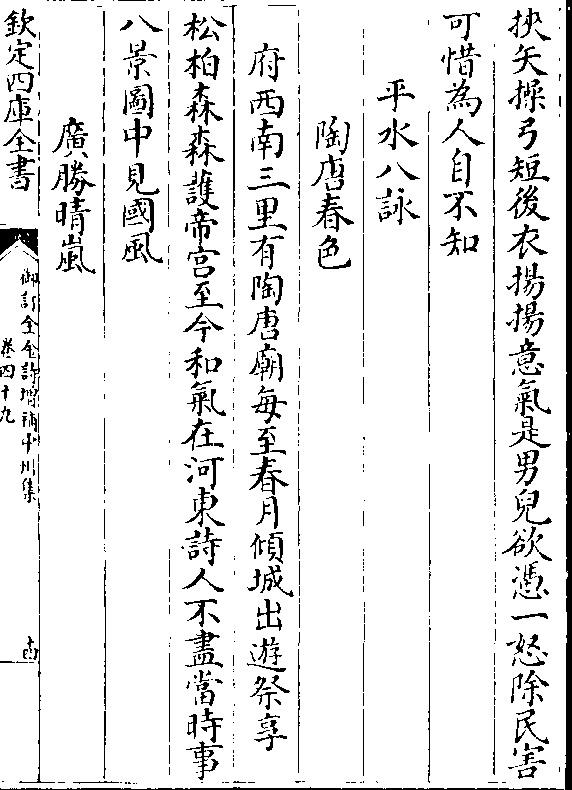 挾矢操弓短後衣揚揚意氣是男兒欲憑一怒除民害
可惜為人自不知
平水八詠
陶唐春色
府西南三里有陶唐廟每至春月傾城出遊祭享
松柏森森護帝宮至今和氣在河東詩人不盡當時事
八景圖中見國風
廣勝晴嵐
欽定四庫全書
御訂全金詩增補中州集
卷四十九